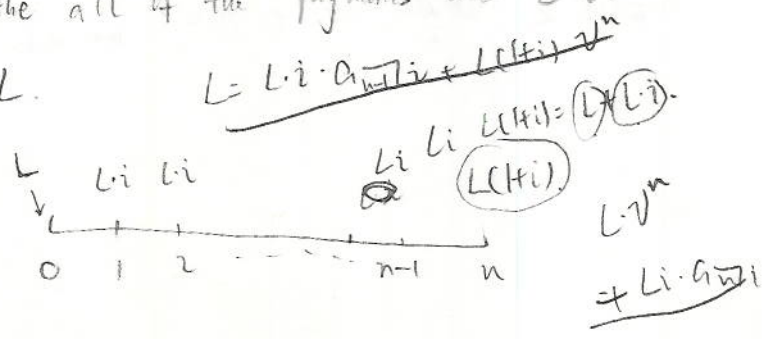 the all of the payments
L.
L = L·i·a_{n-1|i} + L(1+i) v^n
L L·i L·i Li Li L(1+i) = L + L·i.
L(1+i).
0 1 2 - - - - - n-1 n
L·v^n
+ Li·a_{n|i}